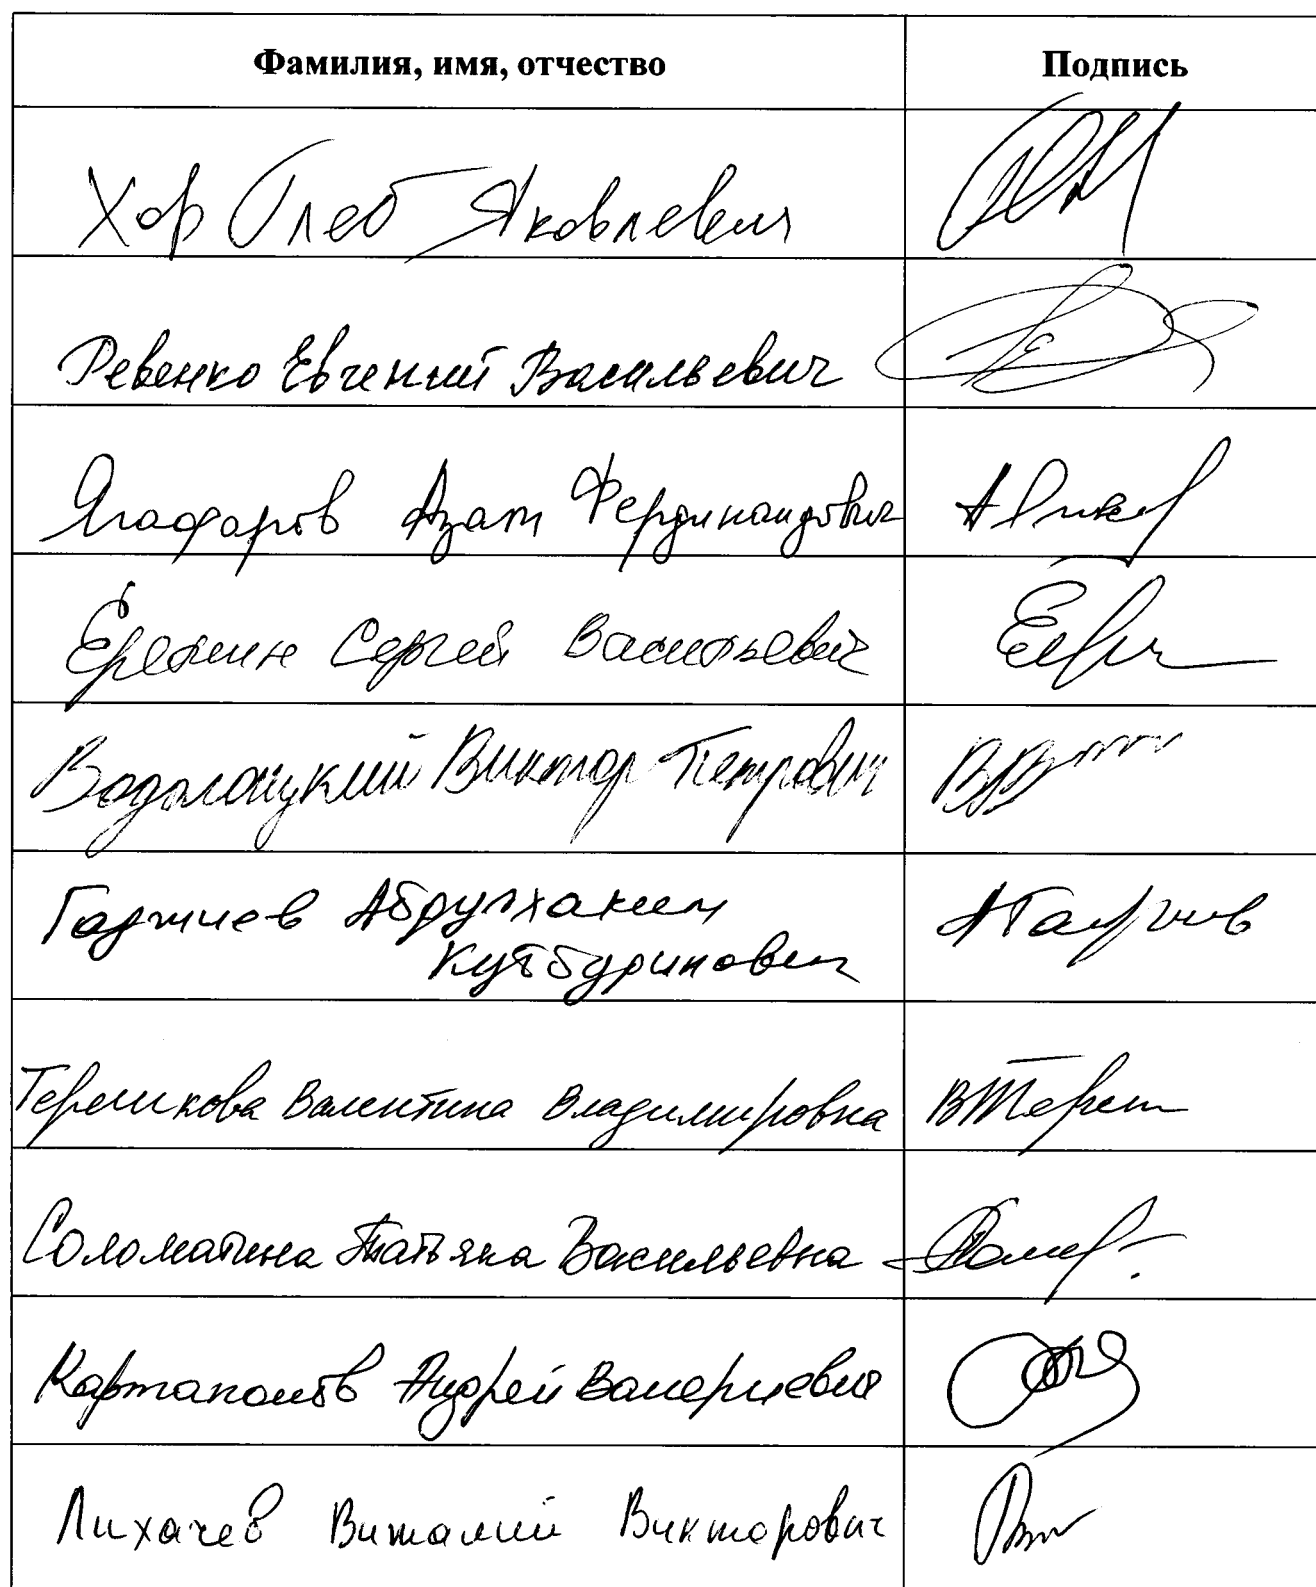 Фамилия, имя, отчество Подпись
Хор Глеб Яковлевич
Ревенко Евгений Васильевич
Ягафаров Азат Фердинандович
Еремин Сергей Васильевич
Водолацкий Виктор Петрович
Гаджиев Абдулхаким
Кутбудинович АГаджиев
Терешкова Валентина Владимировна ВТереш
Соломатина Татьяна Васильевна
Картаполов Андрей Валериевич
Лихачев Виталий Викторович